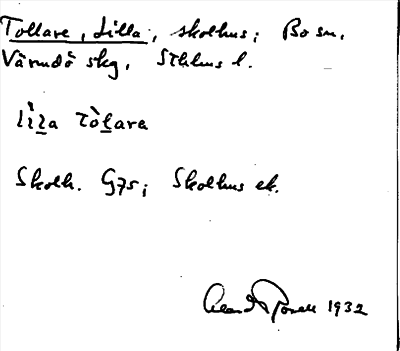 Tollare, Lilla, skolhus; Bo sn,
Värmdö skg, Sthlms l.
lìl̲a Tòl̲ara
Skolh. G75; Skolhus ek.
1932